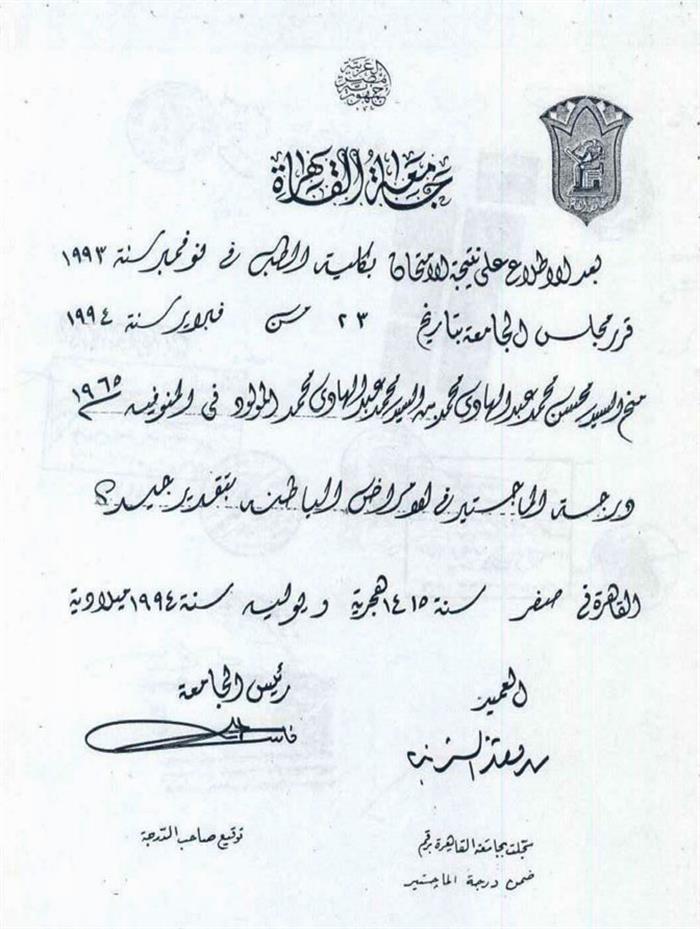 جمهورية مصر العربية
جامعة القاهرة
بعد الاطلاع على نتيجة الامتحان بكلية الطب في نوفمبر سنة ١٩٩٣
قرر مجلس الجامعة بتاريخ ٢٣ من فبراير سنة ١٩٩٤
منح السيد محسن محمد عبد الهادى محمد بن السيد محمد عبد الهادى محمد المولود في المنوفية ١٩٦٥
درجة الماجستير في الامراض الباطنة بتقدير جيد
القاهرة في صفر سنة ١٤١٥ هجرية و يوليه سنة ١٩٩٤ ميلادية
العميد رئيس الجامعة
سجلت بجامعة القاهرة برقم توقيع صاحب الدرجة
ضمن درجة الماجستير